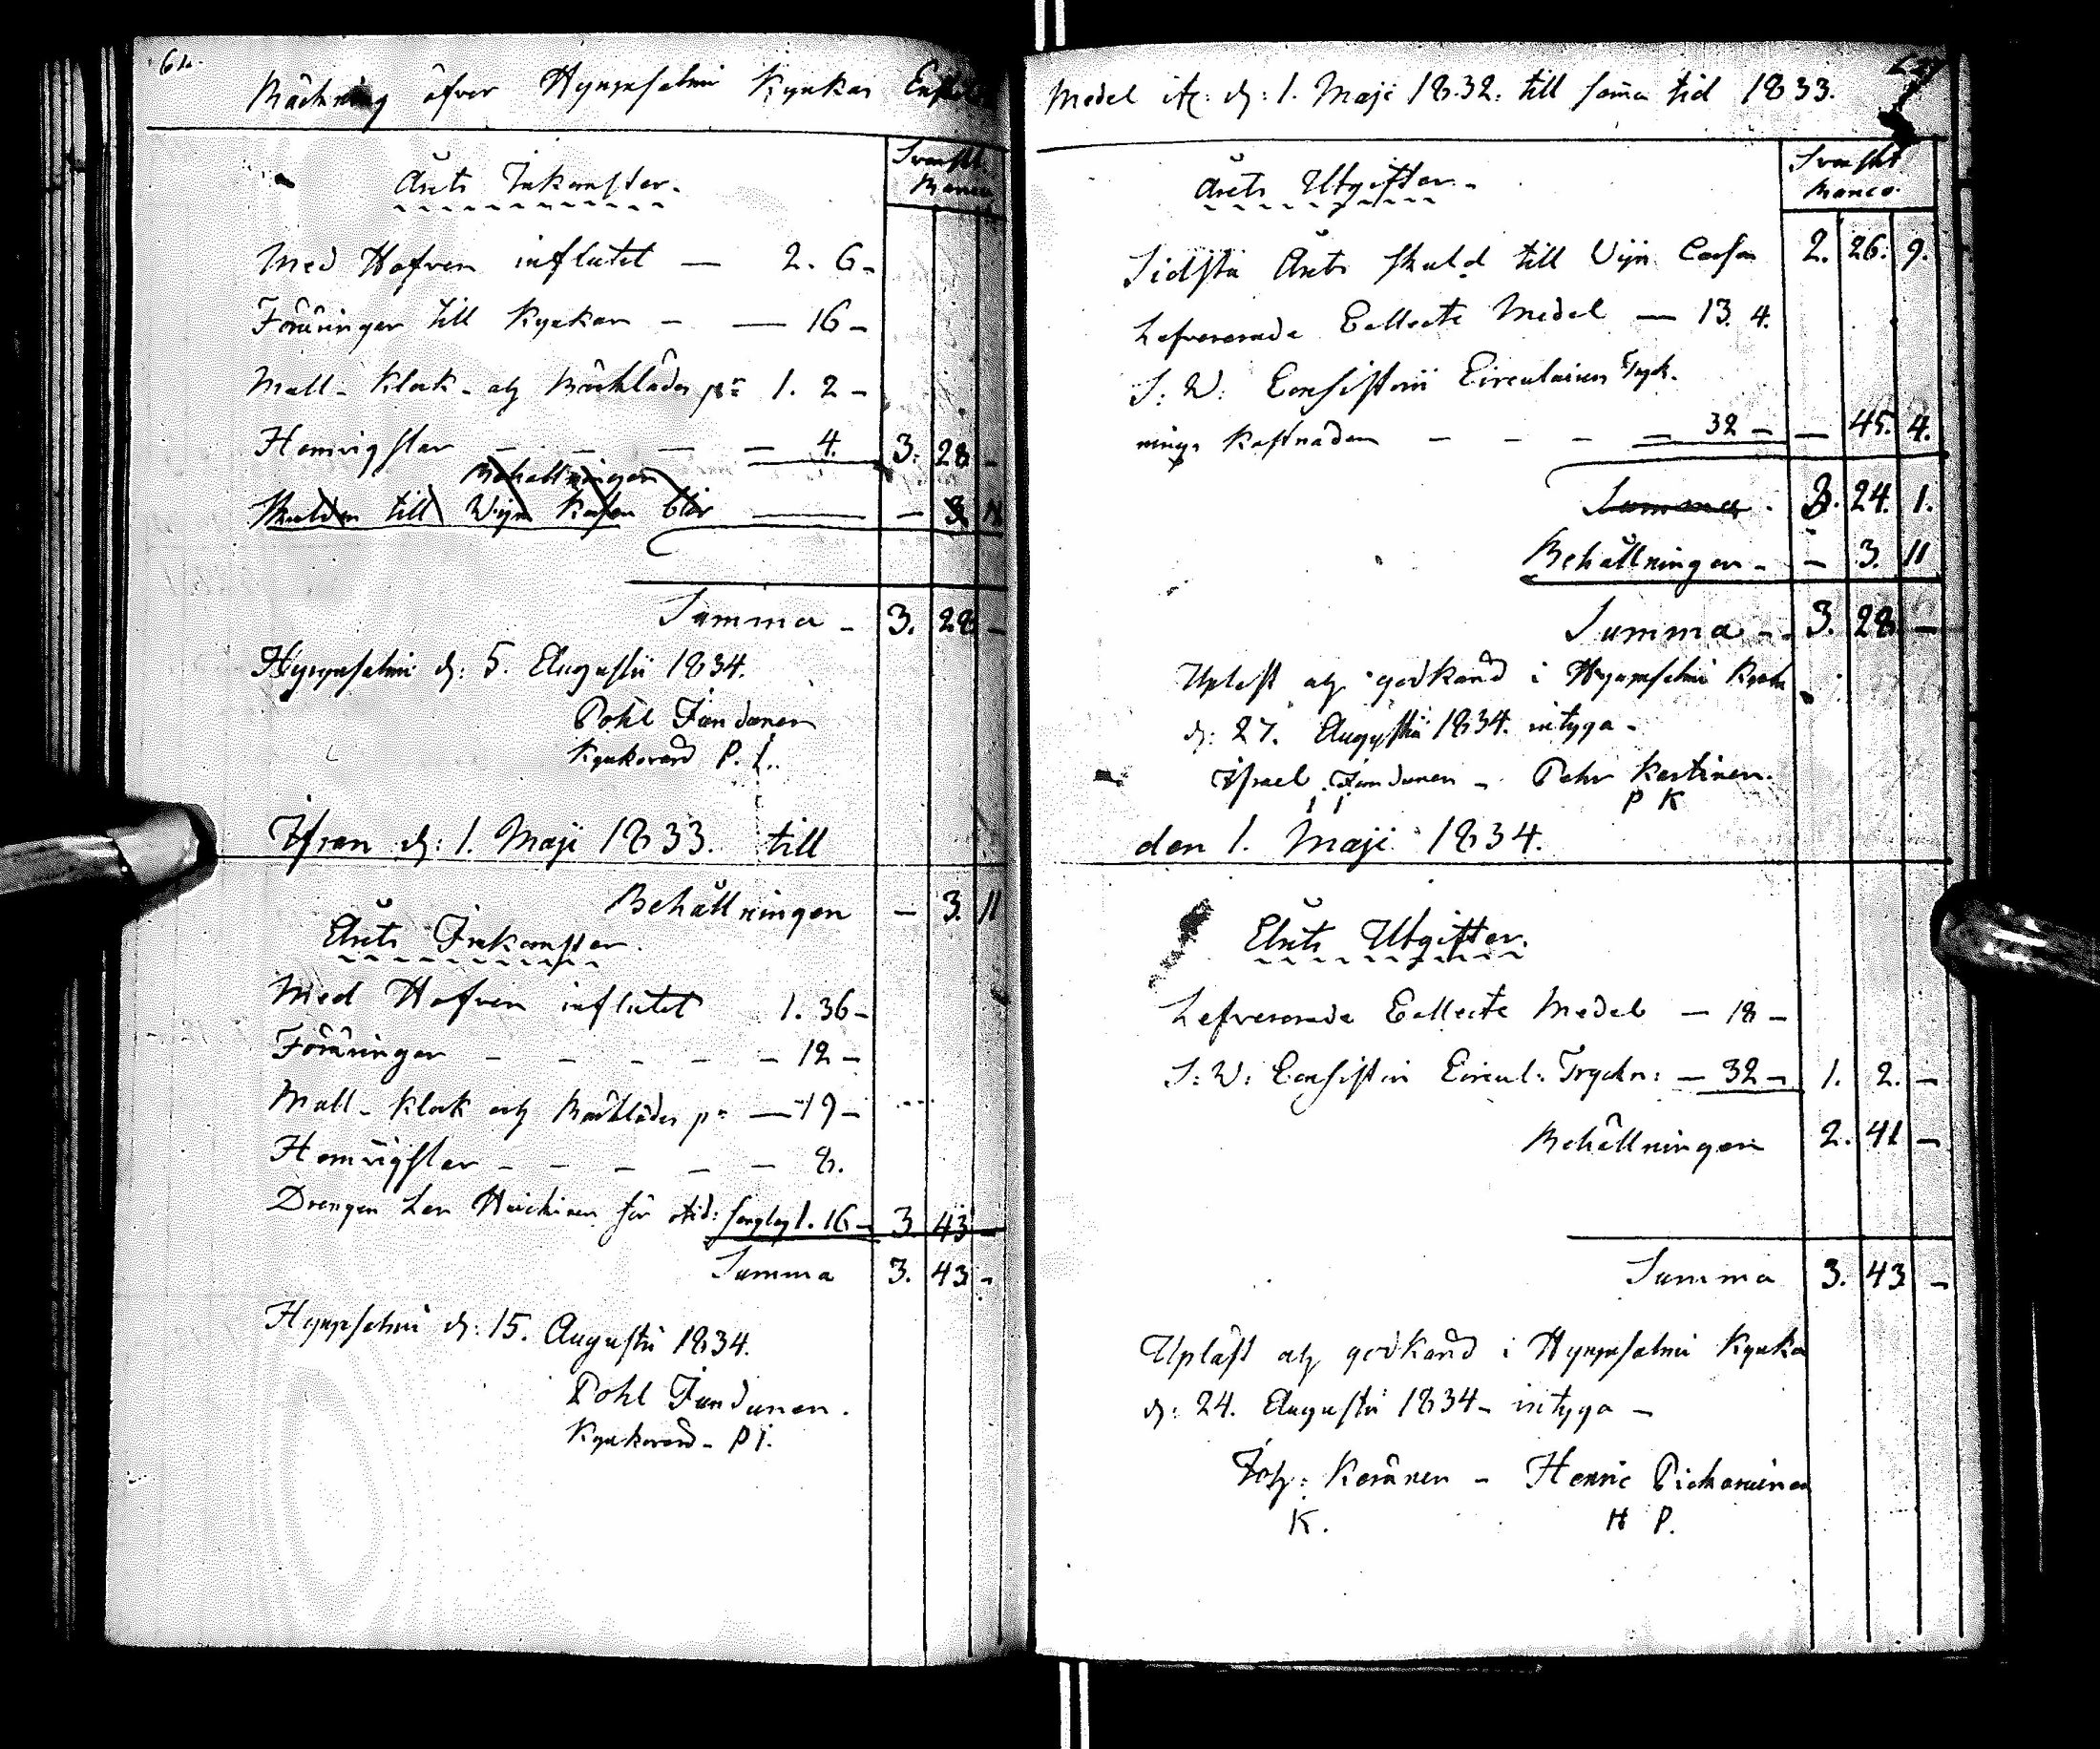 62.
Räckning öfver Hyrynsalmi Kyrkas Enskilda
Svenskt
Banco
Årets Inkomster.
Med Hofven influtit — 2. 6 -
Föräringar till Kyrkan - — 16 -
Mull- Klock- och Bårklädes pr 1. 2 -
Hemvigslar — — — — 4. 3. 28 -
Behållningen
Skulden till Wijn Kassan blir — — 3 11
Summa - 3. 28 -
Hyrynsalmi d: 5. Augustii 1834.
Pohl Jundunen
Kyrkovärd P. I.
Ifrån d: 1. Maji 1833. till
Behållningen — 3. 11
Årets Inkomster.
Med Hofven influtit 1. 36 -
Föräringar - - - - - 12 -
Mull- Klock och Bårklädes pr — 19 -
Hemvigslar - - - - - 8.
Drengen Lars Heickinen för otid: 1. 16 - 3. 43 -
Summa 3. 43 -
Hyrynsalmi d: 15. Augustii 1834.
Pohl Jundunen.
Kyrkovärd - P I.
Medel ifr: d: 1. Maji 1832. till samma tid 1833.
Svenskt
Banco.
Årets Utgifter. -
Sidsta Årets skuld till Wijn Cassan 2. 26. 9.
Lefvererade Collecte Medel — 13. 4.
S: W: Consistorii Circulairen Tryck-
nings Kostnaden - - - — 32 - — 45. 4.
Summa . 3. 24. 1.
Behållningen - — 3. 11
Summa - . 3. 28. —
Upläst och godkänd i Hyrynsalmi Kyrka
d: 27. Augustii 1834. intyga -
Israel Jundunen - Pehr Kestinen.
I I P K
den 1. Maji 1834.
Årets Utgifter.
Lefvererade Collecte Medel — 18 -
S: W: Consistorii Circul: Tryckn: — 32 - 1. 2. -
Behållningen 2. 41 -
Summa 3. 43 -
Upläst och godkänd i Hyrynsalmi Kyrka
d: 24. Augustii 1834 - intyga -
Joh: Keränen - Henric Pickarainen
K. H P.